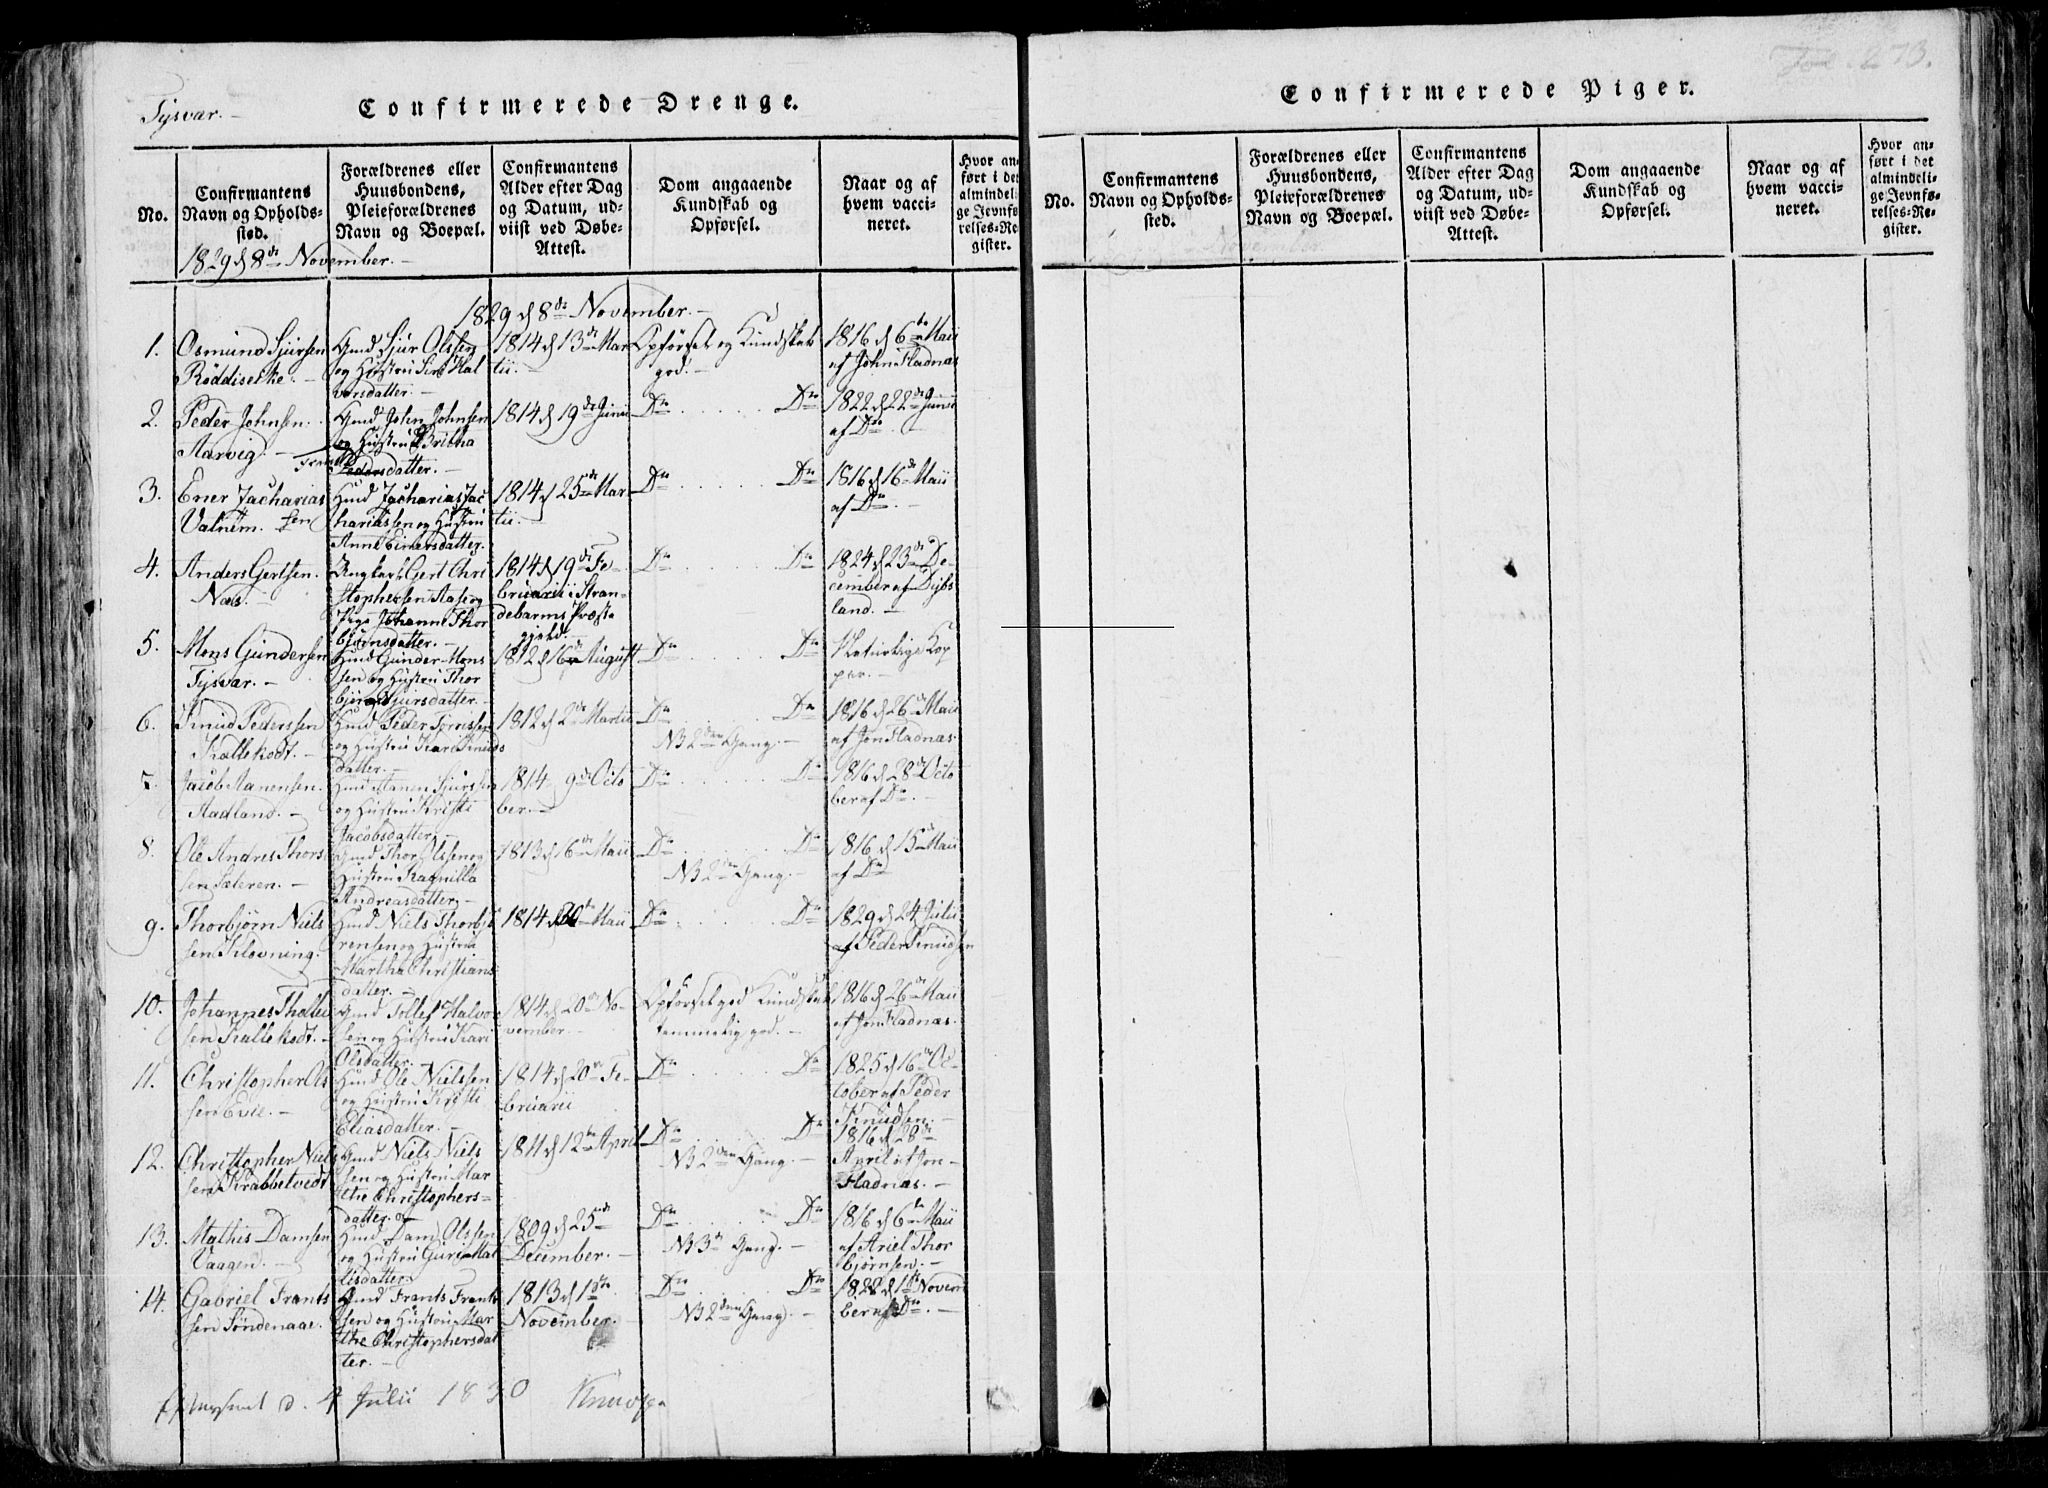 Fol. 273.
Tysvær.
Confirmerede Drenge.
No.
Confirmantens Navn og Opholdssted.
Forældrenes eller Huusbondens, Pleieforældrenes Navn og Boepæl.
Confirmantens Alder efter Dag og Datum, udviist ved Døbe-Attest.
Dom angaaende Kundskab og Opførsel.
Naar og af hvem vaccineret.
Hvor anført i det almindelige Jevnførelses-Register.
1829 d 8de November.
1829 d 8de November.
1. Osmund Sjursen Röddiselke.
Gmd Sjur Olssen og Hustru Siri Halvorsdatter.
1814 d 13de Martii.
Opførsel og Kundskab god.
1816 d 6te Maii af John Fladnæs
2. Peder Johnsen Aarvig.
Gmd John Johnsen og Hustru Britha Pedersdatter.
1814 d 19de Junii
Do Do
1822 d 22de Junii af Do
3. Ener Zachariassen Valhem.
Hmd Zacharias Zachariassen og Hustru Anne Einersdatter.
1814 d 25de Martii.
Do Do
1816 d 16de Maii af Do
4. Anders Gertsen Næs.
Ungkarl Gert Christophersen Aase og Pige Johanne Thorbjørnsdatter.
1814 d 19de Februarii i Strandebarms Præstegjeld.
Do Do
1824 d 23de December af Dybsland.
5. Mons Gundersen Tysvær.
Hmd Gunder Monssen og Hustru Thorbjør Sjursdatter.
1812 d 16de August
Do Do
Naturlige Kopper.
6. Knud Pederssen Kallekodt.
Hmd Peder Tørressen og Hustru Kari Knudsdatter.
1812 d 2de Martii
Do Do
NB 2den Gang.
1816 d 26de Maii af Jon Fladnæs.
7. Jacob Aanensen Aadland.
Hmd Aanen Sjurssen og Hustru Kristi Jacobsdatter.
1814 9de October.
Do Do
1816 d 28de October af Do.
8. Ole Andres Thorssen Sæteren.
Hmd Thor Olssen og Hustru Ragnilla Andreasdatter.
1813 d 16de Maii
Do Do
NB 2den Gang.
1816 d 15de Maii af Do
9. Thorbjørn Nielssen Klovning.
Hmd Niels Thorbjørnsen og Hustru Martha Christiansdatter.
1814 d 20de Maii
Do Do
1829 d 24 Julii af Peder Knudsen
10. Johannes Thollefsen Kallekodt.
Hmd Tollef Halvorsen og Hustru Kari Olsdatter.
1814 d 20de November.
Opførsel god Kundskab temmelig god.
1816 d 26de Maii af Jon Fladnæs.
11. Christopher Olssen Evie.
Hmd Ole Nielssen og Hustru Kristi Eliasdatter.
1814 d 20de Februarii
Do Do
1825 d 16de October af Peder Knudsen.
12. Christopher Nielssen Krabbetvedt
Hmd Niels Nielssen og Hustru Marthe Christophersdatter.
1811 d 12te April
Do Do
NB 2den Gang.
1816 d 28de April af Jon Fladnæs.
13. Mathis Damsen Vaagen.
Hmd Dam Olssen og Hustru Guri Mattisdatter.
1809 d 25de December.
Do Do
NB 3de Gang.
1816 d 6te Maii af Ariel Thorbjørnsen.
14. Gabriel Frantssen Söndenaae.
Hmd Frants Frantssen og Hustru Marthe Christophersdatter.
1813 d 1ste November.
Do Do
NB 2den Gang.
1822 d 1ste November af Do.
d. 4 Julii 1830
Confirmerede Piger.
No.
Confirmantens Navn og Opholdssted.
Forældrenes eller Huusbondens, Pleieforældrenes Navn og Boepæl.
Confirmantens Alder efter Dag og Datum, udviist ved Døbe-Attest.
Dom angaaende Kundskab og Opførsel.
Naar og af hvem vaccineret.
Hvor anført i det almindelige Jevnførelses-Register.